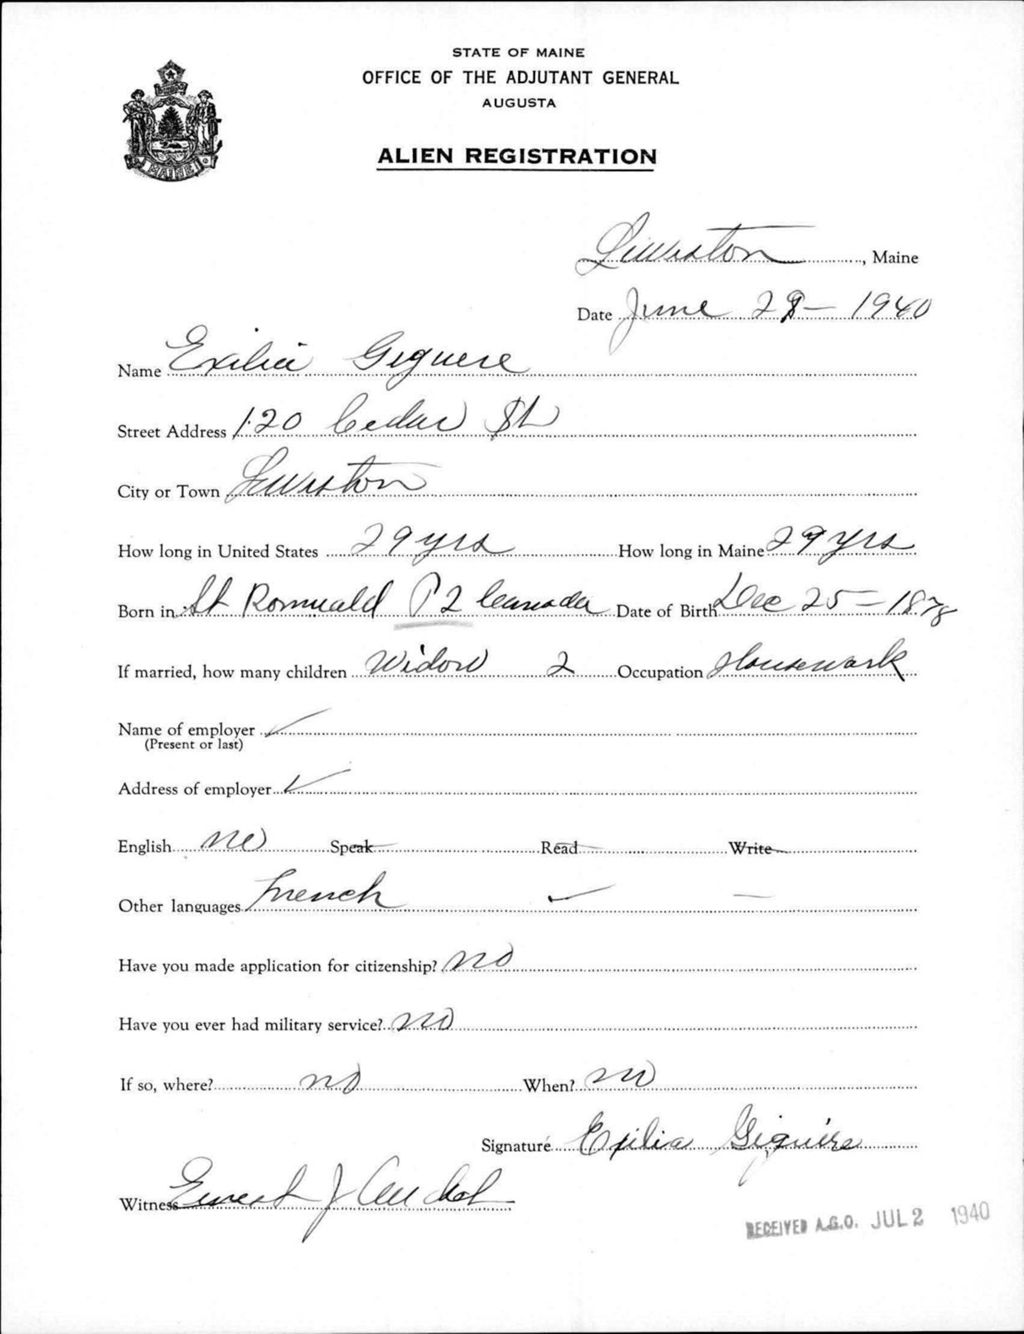 STATE OF MAINE
OFFICE OF THE ADJUTANT GENERAL
AUGUSTA
MAINE
ALIEN REGISTRATION
Lewiston, Maine
Date June 28 - 1940
Name Exilia Giguere
Street Address 120 Cedar St
City or Town Lewiston
How long in United States 29 yrs How long in Maine 29 yrs
Born in St Romuald P2 Canada Date of Birth Dec 25 - 1878
If married, how many children Widow 2 Occupation Housework
Name of employer ✓
(Present or last)
Address of employer ✓
English no Speak Read Write
Other languages French ✓ —
Have you made application for citizenship? no
Have you ever had military service? no
If so, where? no When? no
Signature Exilia Giguère
Witness Ernest J
RECEIVED A.G.O. JUL 2 1940